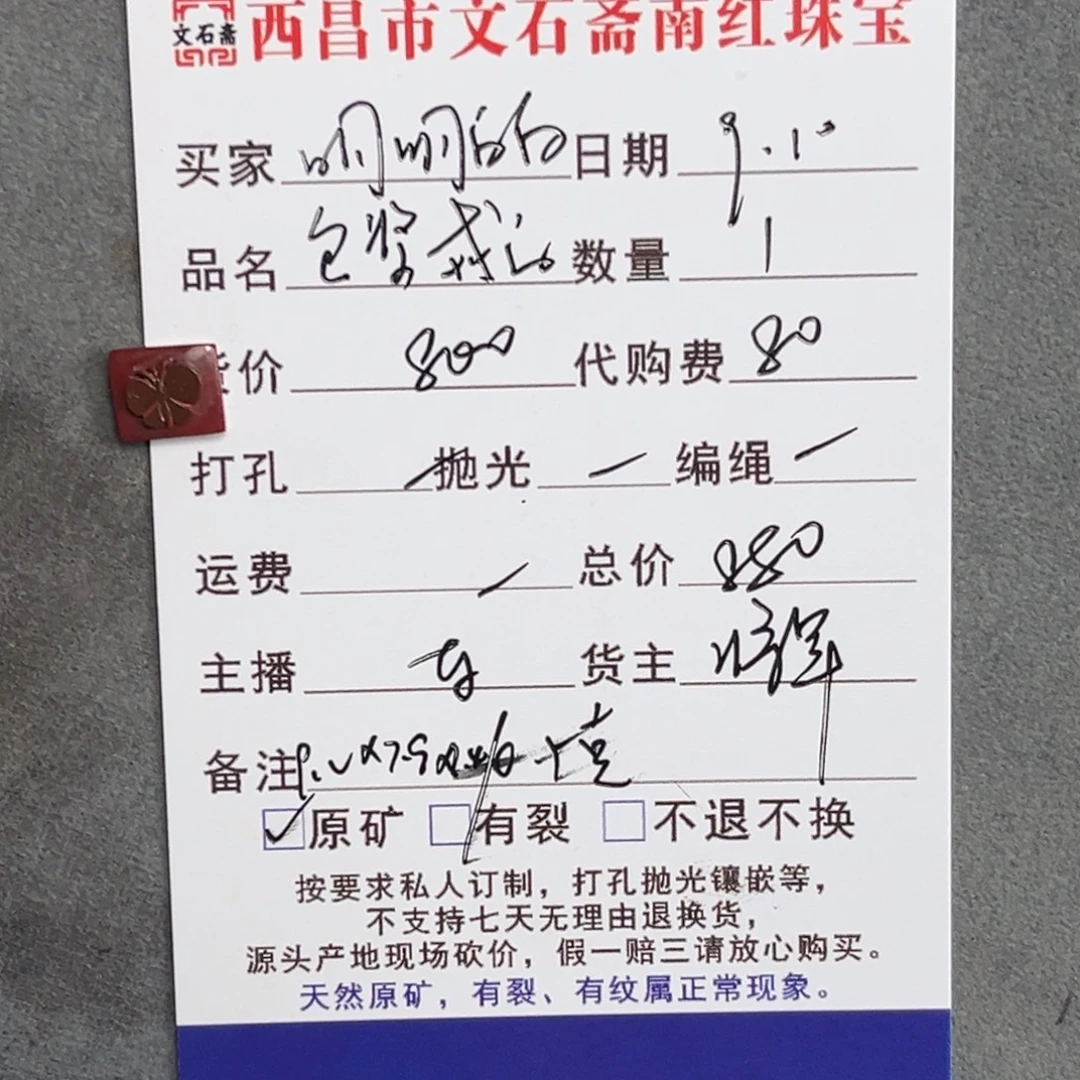 文石斋 西昌市文石斋南红珠宝
买家 明明的 日期 9.10
品名 包浆 数量 1
价 800 代购费 80
打孔 / 抛光 / 编绳 /
运费 / 总价 880
主播 货主
备注
☑原矿 □有裂 □不退不换
按要求私人订制，打孔抛光镶嵌等，
不支持七天无理由退换货，
源头产地现场砍价，假一赔三请放心购买。
天然原矿，有裂、有纹属正常现象。